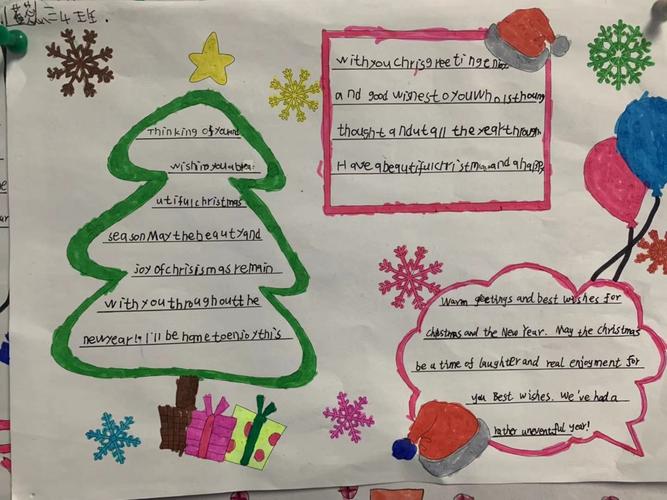 三4班.
Thinking of you and
wishing you a bea-
utiful christmas
season May the beauty and
joy of chrisismas remain
with you throughout the
new year! I'll be home to enjoy this
with you chris greeting
and good wishes to you who is
thought and utall the year through
Have a beautiful christmas and a happy
Warm greetings and best wishes for
christmas and the New Year. May the christmas
be a time of laughter and real enjoyment for
you Best wishes. We've had a
rather uneventful year!